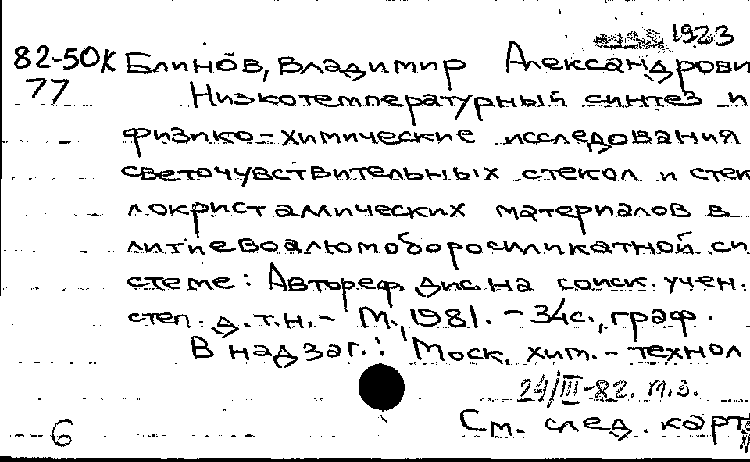 1923
82-50К Блинов, Владимир Александрови
77 Низкотемпературный синтез и
физико-химические исследования
светочувствительных стекол и стек
локристаллических материалов в
литиевоалюмоборосиликатной си
стеме: Автореф. дис. на соиск. учен.
степ. д.т.н. - М., 1981. - 34с., граф.
В надзаг.: Моск. хим.-технол
24/III-82. т.з.
См. след. карт
6